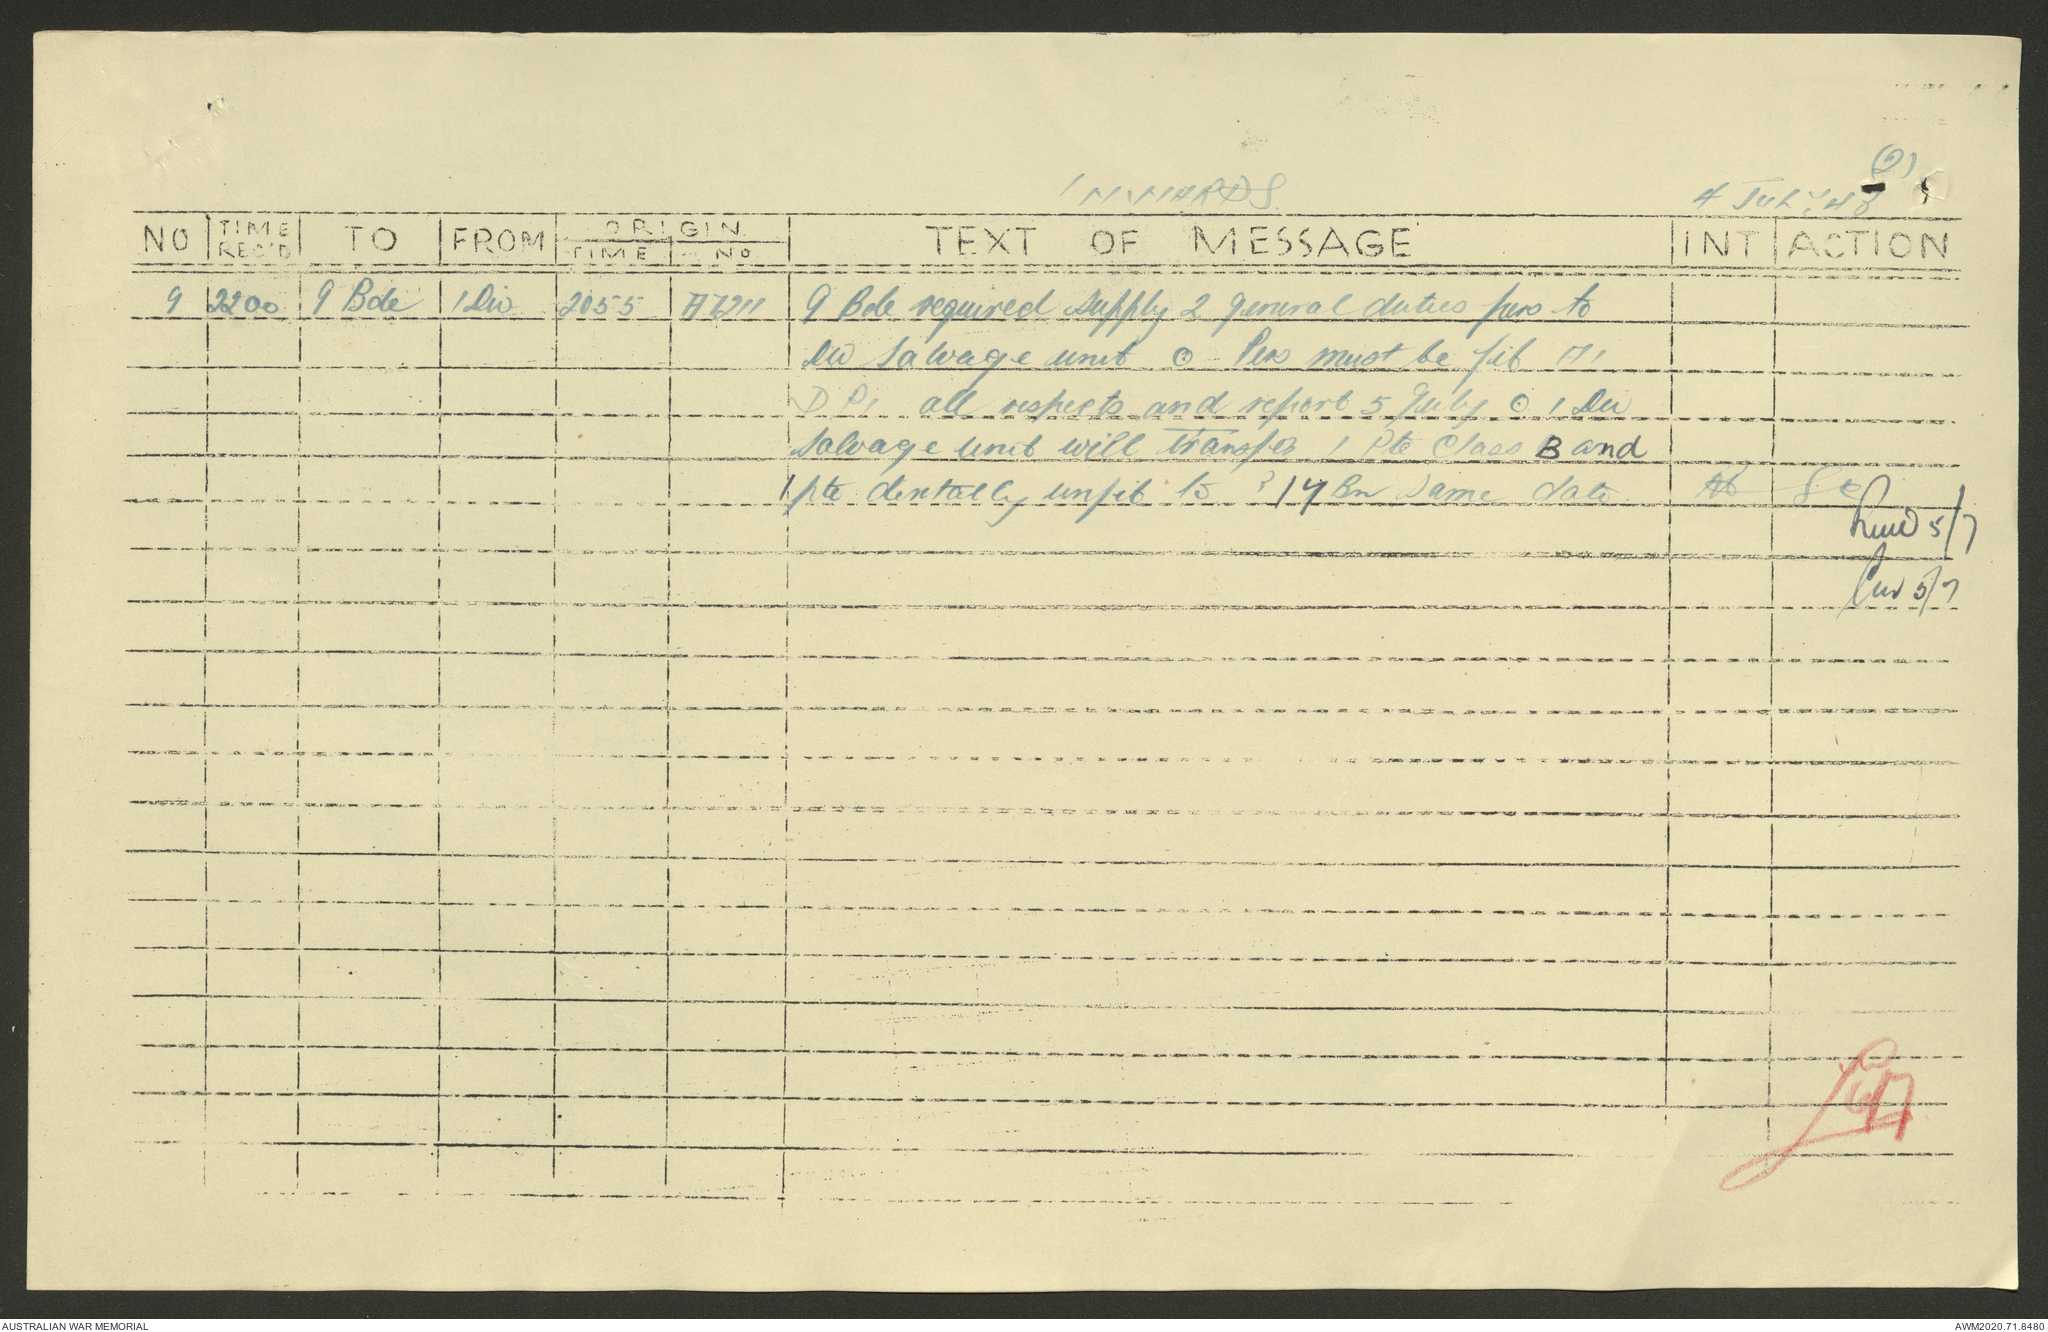 (2)
INWARDS. 4 July, 43
NO TIME REC'D TO FROM ORIGIN TIME NO TEXT OF MESSAGE INT ACTION
9 2200 9 Bde 1 Div 2055 A6211 9 Bde required supply 2 general duties pers to
Div Salvage unit ⊙ Pers must be fit A1
DP1 all respects and report 5 July ⊙ 1 Div
salvage unit will transfer 1 Pte Class B and
1 pte dentally unfit to ? 14 Bn Same date
5/7
5/7
AUSTRALIAN WAR MEMORIAL
AWM2020.71.8480